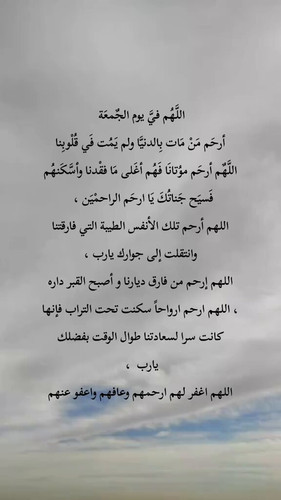 اللَّهُم فيَّ يوم الجٌمعَة
أرحَم مَنْ مَات بِالدنيَّا ولم يَمُت فَي قُلُوبِنا
اللَّهٌم أرحَم موُتانَا فَهُم أغَلى مَا فقْدنا وأسَّكَنهُم
فَسيَح جَناتُكَ يَا ارحَم الراحمْيَن ،
اللهم أرحم تلك الأنفس الطيبة التي فارقتنا
وانتقلت إلى جوارك يارب ،
اللهم إرحم من فارق ديارنا و أصبح القبر داره
، اللهم ارحم ارواحاً سكنت تحت التراب فإنها
كانت سرا لسعادتنا طوال الوقت بفضلك
يارب ،
اللهم اغفر لهم ارحمهم وعافهم واعفو عنهم